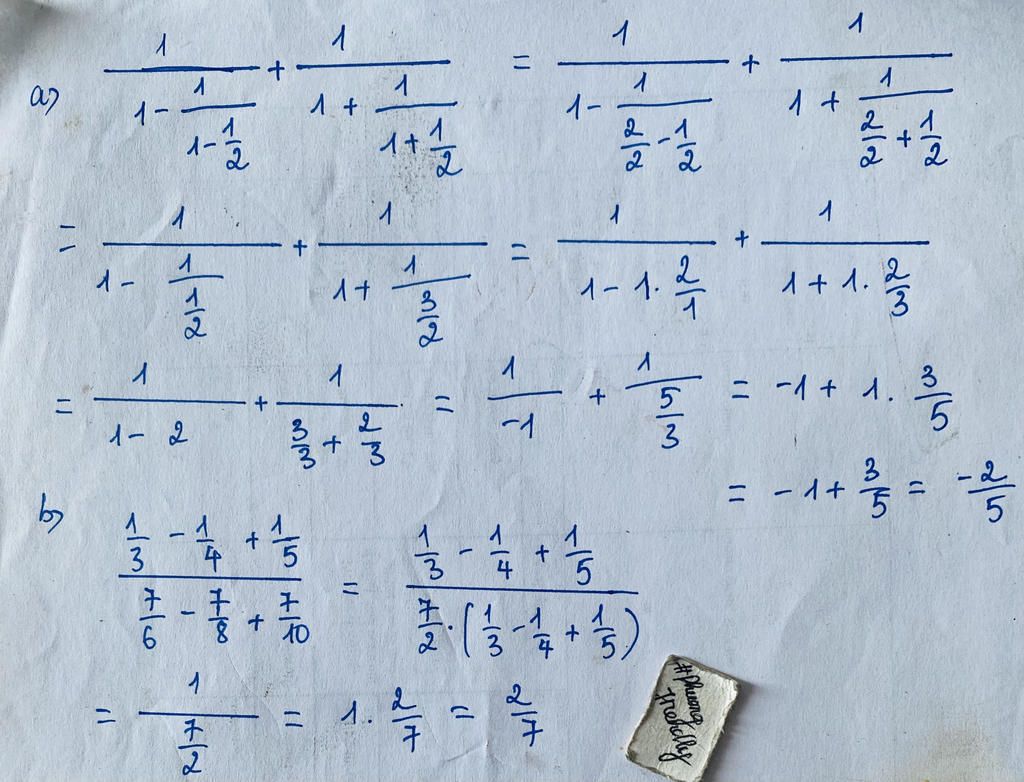 a) \frac{1}{1-\frac{1}{1-\frac{1}{2}}} + \frac{1}{1+\frac{1}{1+\frac{1}{2}}} = \frac{1}{1-\frac{1}{\frac{2}{2}-\frac{1}{2}}} + \frac{1}{1+\frac{1}{\frac{2}{2}+\frac{1}{2}}}
= \frac{1}{1-\frac{1}{\frac{1}{2}}} + \frac{1}{1+\frac{1}{\frac{3}{2}}} = \frac{1}{1-1.\frac{2}{1}} + \frac{1}{1+1.\frac{2}{3}}
= \frac{1}{1-2} + \frac{1}{\frac{3}{3}+\frac{2}{3}} = \frac{1}{-1} + \frac{1}{\frac{5}{3}} = -1+1.\frac{3}{5}
= -1+\frac{3}{5} = \frac{-2}{5}
b) \frac{\frac{1}{3}-\frac{1}{4}+\frac{1}{5}}{\frac{7}{6}-\frac{7}{8}+\frac{7}{10}} = \frac{\frac{1}{3}-\frac{1}{4}+\frac{1}{5}}{\frac{7}{2}.(\frac{1}{3}-\frac{1}{4}+\frac{1}{5})}
= \frac{1}{\frac{7}{2}} = 1.\frac{2}{7} = \frac{2}{7}